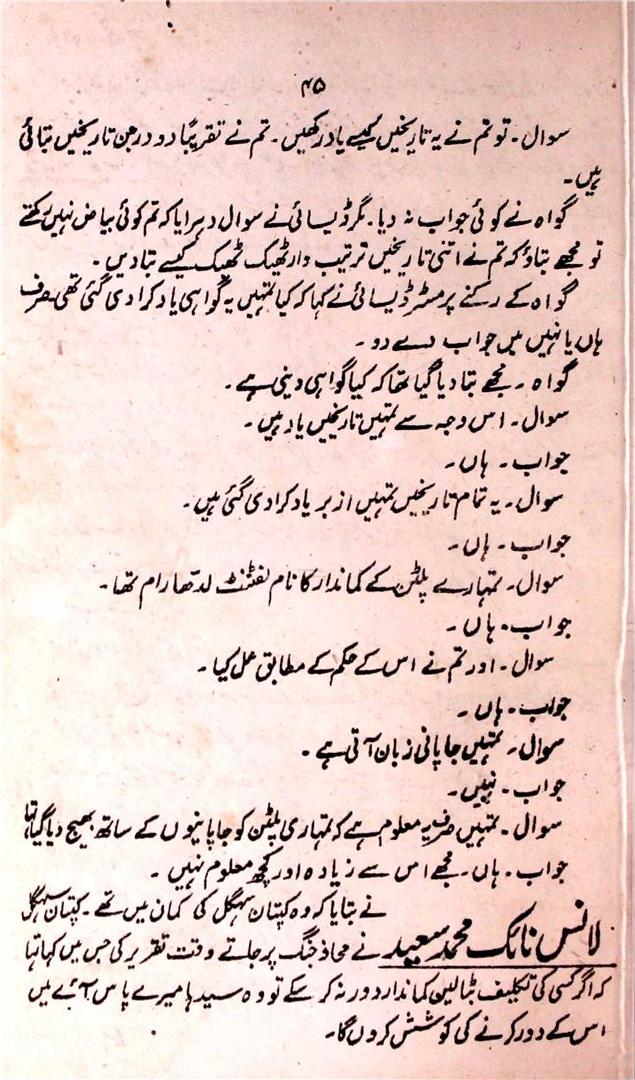 ۴۵
سوال۔ تو تم نے یہ تاریخیں کیسے یاد رکھیں۔ تم نے تقریباً دو درجن تاریخیں بتائی
ہیں۔
گواہ نے کوئی جواب نہ دیا۔ مگر ڈیسائی نے سوال دہرایا کہ تم کوئی بیاض نہیں رکھتے
تو مجھے بتاؤ کہ تم نے اتنی تاریخیں ترتیب وار ٹھیک ٹھیک کیسے بتا دیں۔
گواہ کے رکنے پر مسٹر ڈیسائی نے کہا کہ کیا تمہیں یہ گواہی یاد کرا دی گئی تھی صرف
ہاں یا نہیں میں جواب دے دو۔
گواہ۔ مجھے بتا دیا گیا تھا کہ کیا گواہی دینی ہے۔
سوال۔ اس وجہ سے تمہیں تاریخیں یاد ہیں۔
جواب۔ ہاں۔
سوال۔ یہ تمام تاریخیں تمہیں ازبر یاد کرا دی گئی ہیں۔
جواب۔ ہاں۔
سوال۔ تمہارے پلٹن کے کماندار کا نام لفٹنٹ لدھا رام تھا۔
جواب۔ ہاں۔
سوال۔ اور تم نے اس کے حکم کے مطابق عمل کیا۔
جواب۔ ہاں۔
سوال۔ تمہیں جاپانی زبان آتی ہے۔
جواب۔ نہیں۔
سوال۔ تمہیں صرف یہ معلوم ہے کہ تمہاری پلٹن کو جاپانیوں کے ساتھ بھیج دیا گیا تھا
جواب۔ ہاں۔ مجھے اس سے زیادہ اور کچھ معلوم نہیں۔
لانس نائک محمد سعید نے بتایا کہ وہ کپتان سہگل کی کمان میں تھے۔ کپتان سہگل
نے محاذ جنگ پر جاتے وقت تقریر کی جس میں کہا تہا
کہ اگر کسی کی تکلیف بٹالین کماندار دور نہ کر سکے تو وہ سیدہا میرے پاس آئے میں
اس کے دور کرنے کی کوشش کروں گا۔